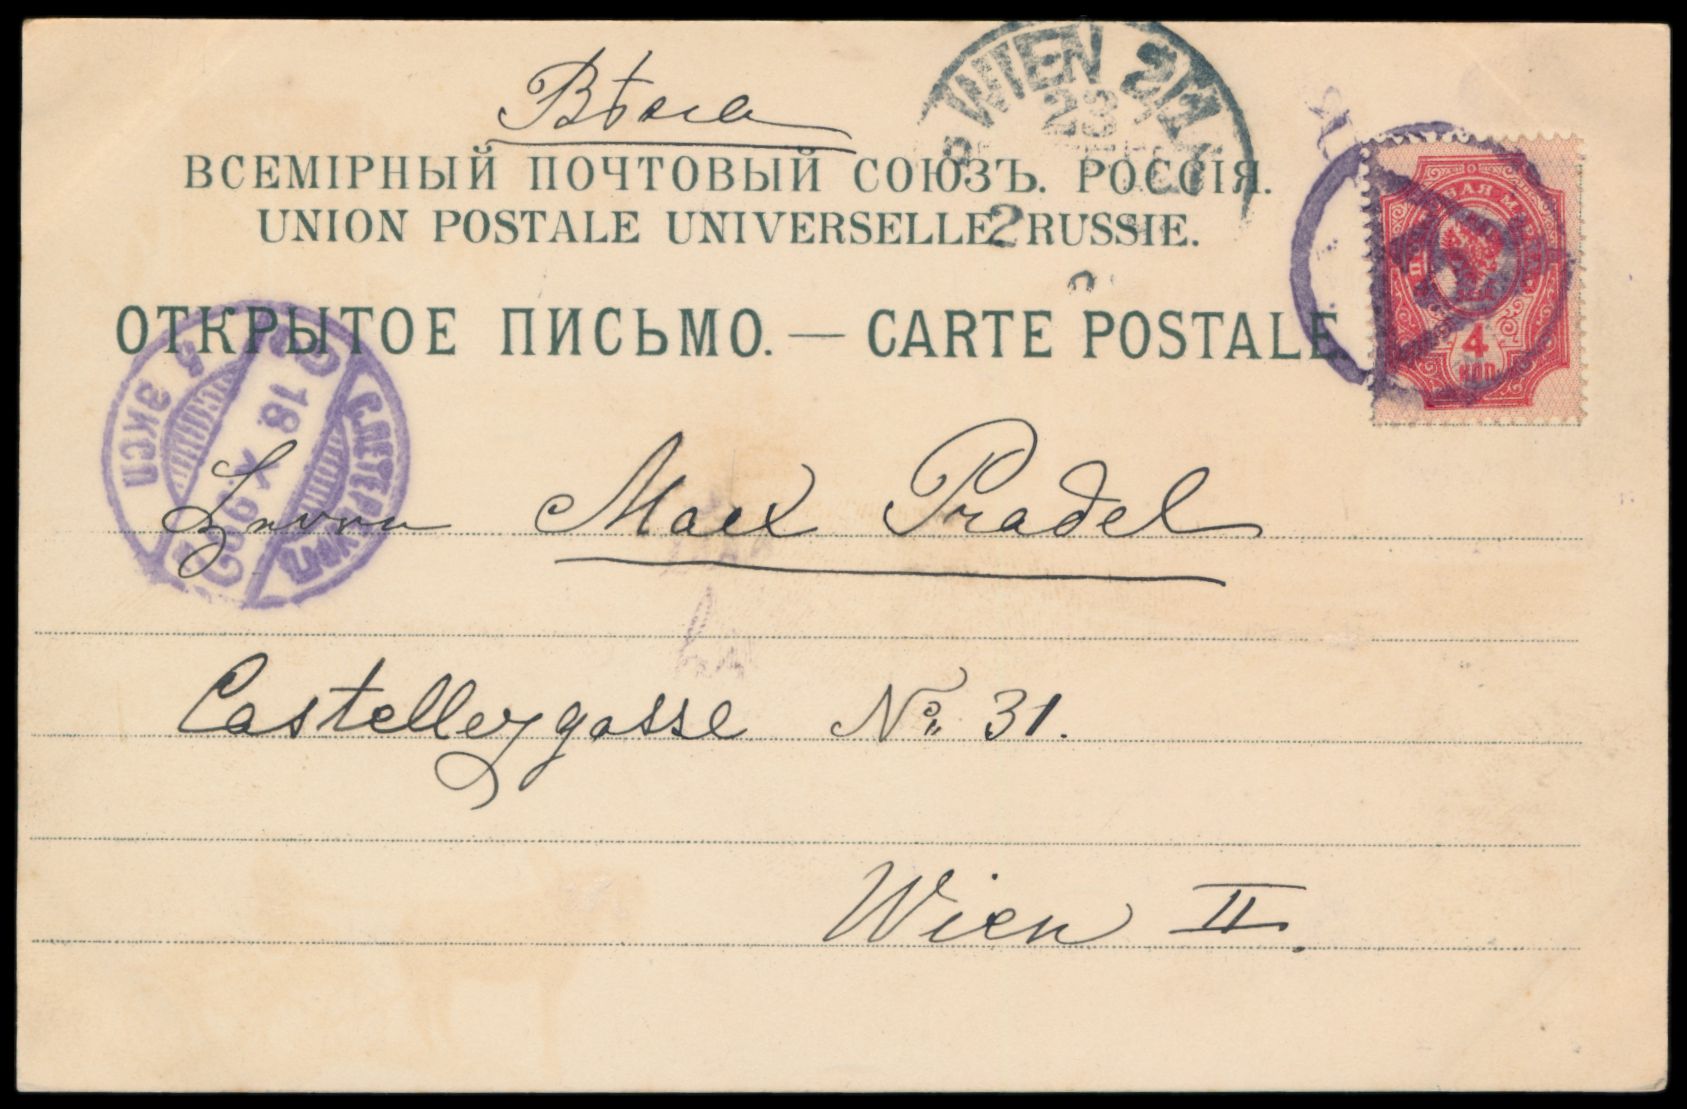 Вѣна
WIEN 2
23
ВСЕМІРНЫЙ ПОЧТОВЫЙ СОЮЗЪ. РОССІЯ.
UNION POSTALE UNIVERSELLE RUSSIE.
2
ОТКРЫТОЕ ПИСЬМО. — CARTE POSTALE.
4
КОП.
С.ПЕТЕРБУРГЪ
18 X 1902
5 ЭКСП
Herrn Max Pradel
Castellezgasse № 31.
Wien II.